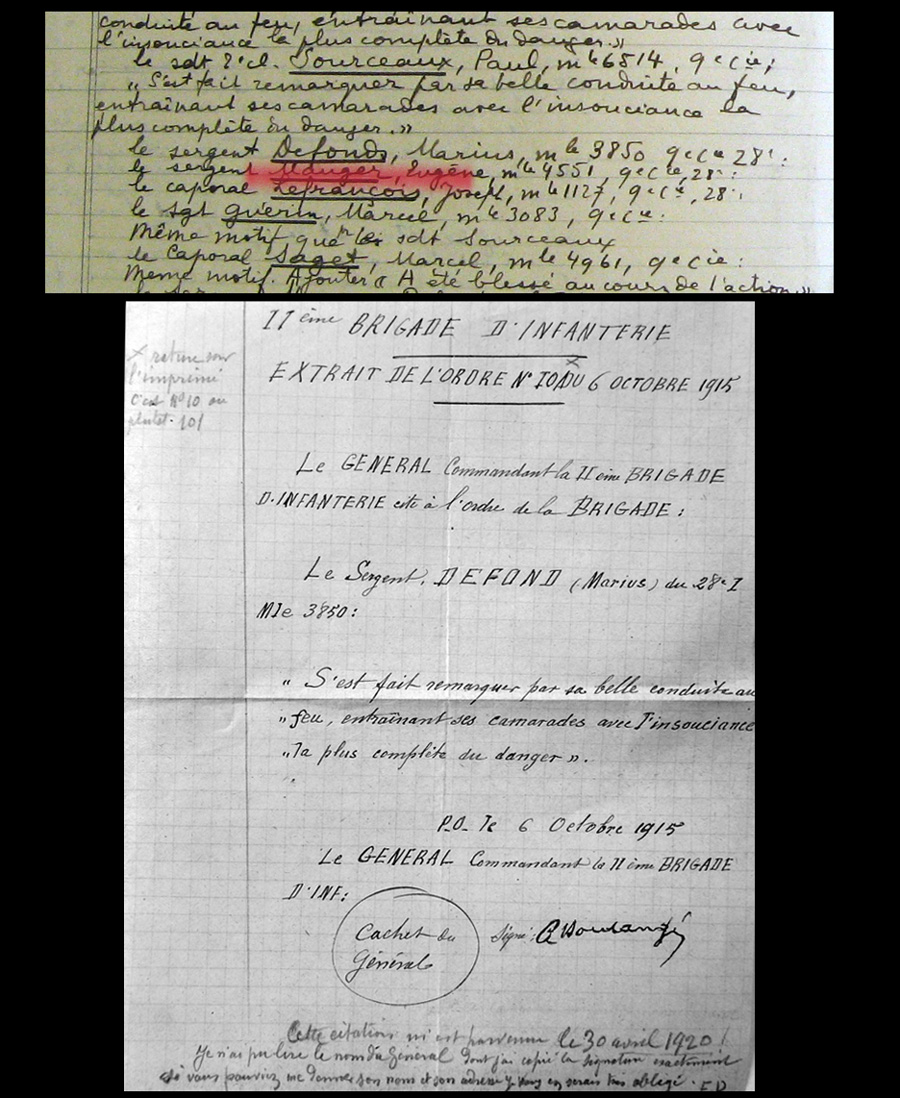 conduite au feu, entraînant ses camarades avec
l'insouciance la plus complète du danger.»
le sdt 2e cl. Sourceaux, Paul, mle 6514, 9e Cie;
"S'est fait remarquer par sa belle conduite au feu,
entraînant ses camarades avec l'insouciance la
plus complète du danger.»
le sergent Defond, Marius, mle 3850 9e Cie 28e:
le sergent Mauger, Eugène, mle 4551, 9e Cie, 28e:
le caporal Lefrançois, Joseph, mle 1127, 9e Cie, 28e:
le sgt Guérin, Marcel, mle 3083, 9e Cie:
Même motif que le sdt Sourceaux
le Caporal Saget, Marcel, mle 4961, 9e Cie:
Même motif. Ajouter "A été blessé au cours de l'action.»
IIème BRIGADE D'INFANTERIE
x retenu sur
l'imprimé
c'est No 10 ou
plutot 101
EXTRAIT DE L'ORDRE No IOI x DU 6 OCTOBRE 1915
Le GENERAL Commandant la IIème BRIGADE
D.INFANTERIE cite à l'ordre de la BRIGADE:
Le Sergent. DEFOND (Marius) du 28e I
MIe 3850:
" S'est fait remarquer par sa belle conduite au
" feu, entraînant ses camarades avec l'insouciance
" la plus complète du danger ».
P.O. le 6 Octobre 1915
Le GENERAL Commandant la IIème BRIGADE
D'INF:
Cachet du
Général
Signé:
Cette citation m'est parvenue le 30 avril 1920!
Je n'ai pu lire le nom du Général dont j'ai copié la signature exactement
si vous pouviez me donner son nom et son adresse je vous en serais très obligé. F D